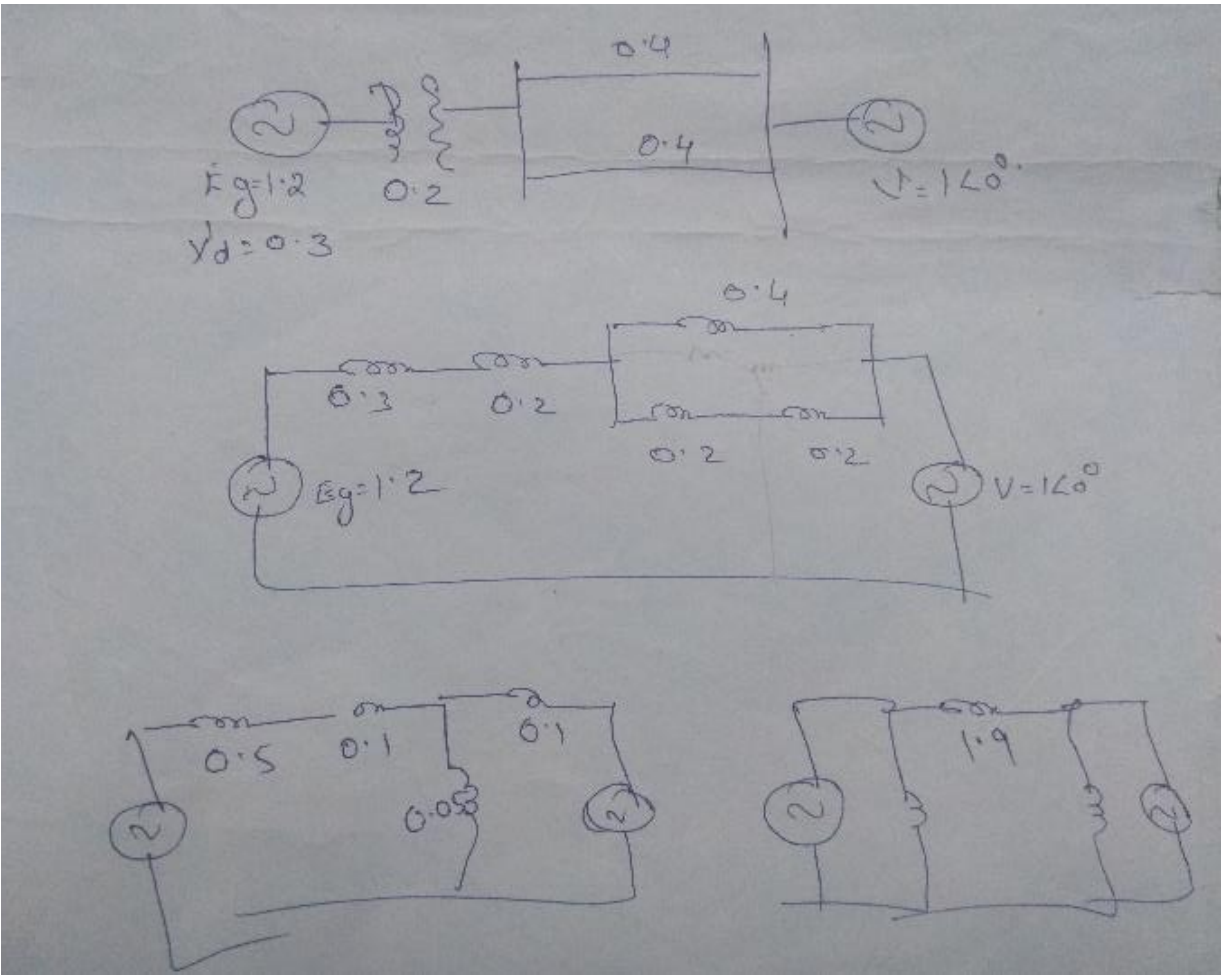 0.4
0.4
Eg=1.2
0.2
V=1∠0°
X'd=0.3
0.4
0.3
0.2
0.2
0.2
Eg=1.2
V=1∠0°
0.5
0.1
0.1
0.05
1.9